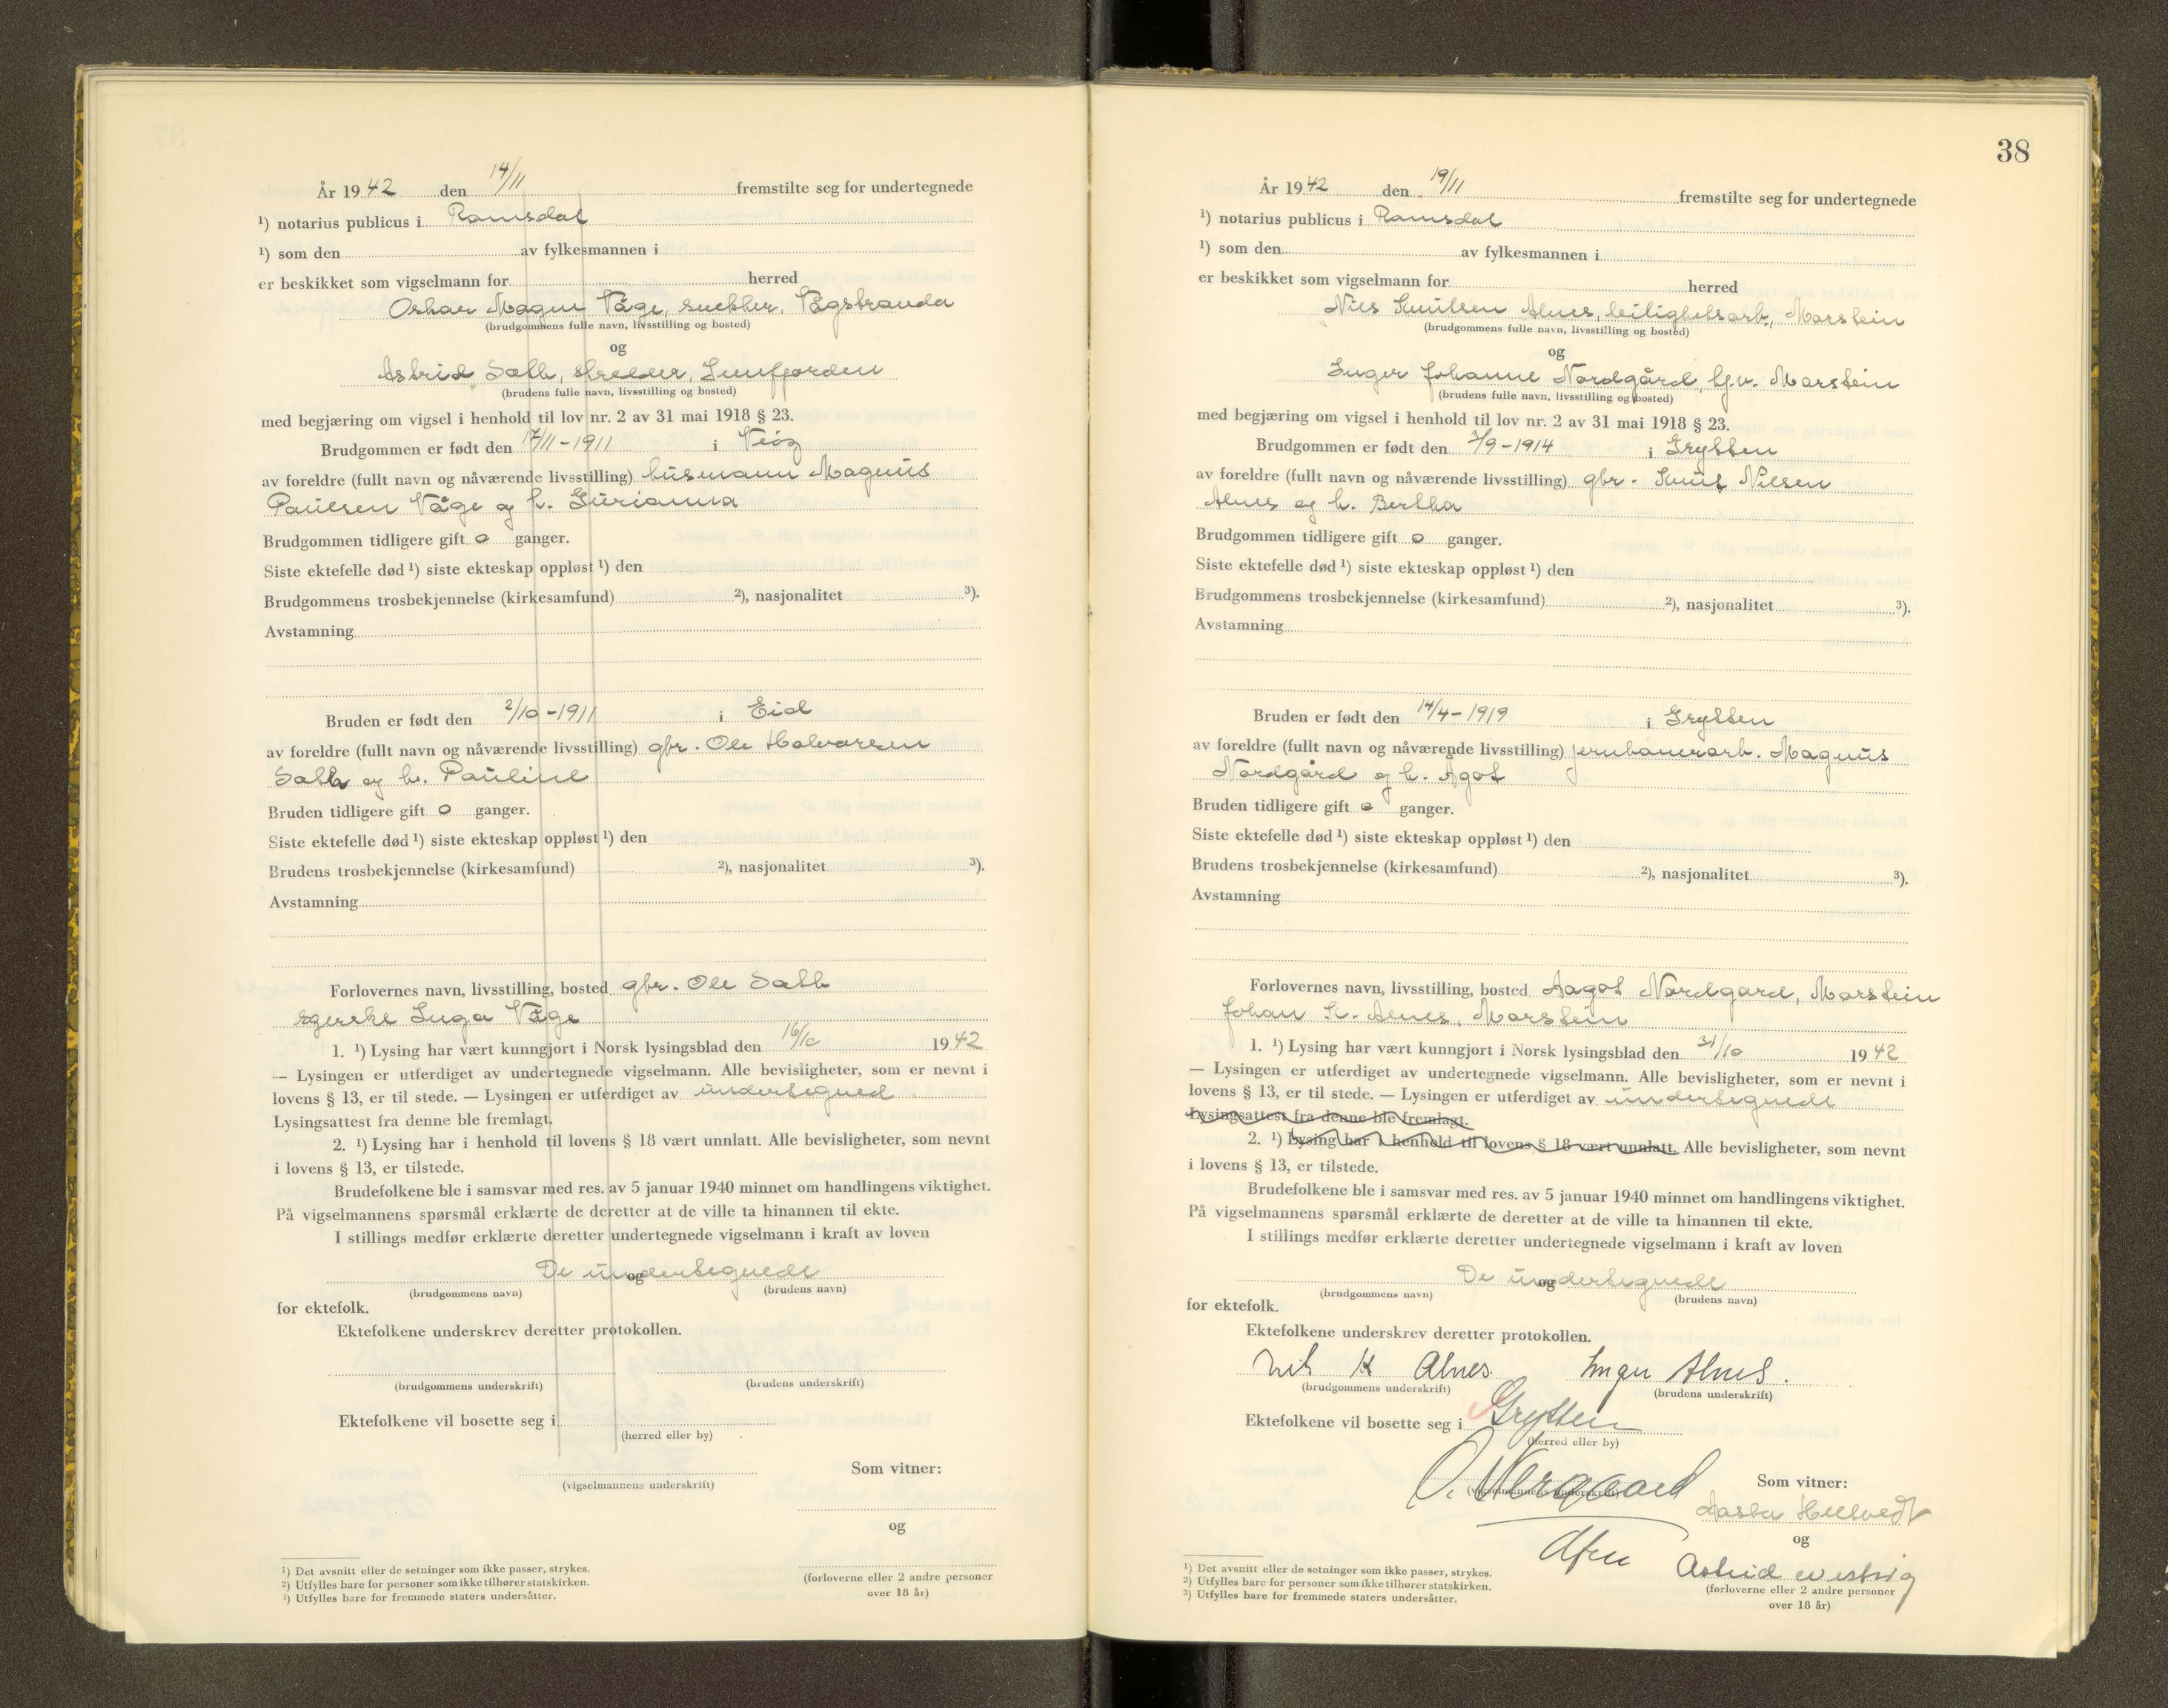 År 19 42 den 14/11 fremstilte seg for undertegnede
¹) notarius publicus i Romsdal
¹) som den av fylkesmannen i
er beskikket som vigselmann for herred
Oskar Magnus Våge, snekker, Vågstranda
(brudgommens fulle navn, livsstilling og bosted)
og
Astrid Sæth,
(brudens fulle navn, livsstilling og bosted)
med begjæring om vigsel i henhold til lov nr. 2 av 31 mai 1918 § 23.
Brudgommen er født den 17/11-1911 i Veøy
av foreldre (fullt navn og nåværende livsstilling) husmann Magnus
Paulsen Våge og h. Gurianna
Brudgommen tidligere gift 0 ganger.
Siste ektefelle død ¹) siste ekteskap oppløst ¹) den
Brudgommens trosbekjennelse (kirkesamfund) ²), nasjonalitet ³).
Avstamning
Bruden er født den 2/10-1911 i Eid
av foreldre (fullt navn og nåværende livsstilling) gbr. Ole Halvorsen
og h. Pauline
Bruden tidligere gift 0 ganger.
Siste ektefelle død ¹) siste ekteskap oppløst ¹) den
Brudens trosbekjennelse (kirkesamfund) ²), nasjonalitet ³).
Avstamning
Forlovernes navn, livsstilling, bosted gbr. Ole Sæth
syerske Inga Våge
1. ¹) Lysing har vært kunngjort i Norsk lysingsblad den 16/10 19 42
— Lysingen er utferdiget av undertegnede vigselmann. Alle bevisligheter, som er nevnt i
lovens § 13, er til stede. — Lysingen er utferdiget av undertegned
Lysingsattest fra denne ble fremlagt.
2. ¹) Lysing har i henhold til lovens § 18 vært unnlatt. Alle bevisligheter, som nevnt
i lovens § 13, er tilstede.
Brudefolkene ble i samsvar med res. av 5 januar 1940 minnet om handlingens viktighet.
På vigselmannens spørsmål erklærte de deretter at de ville ta hinannen til ekte.
I stillings medfør erklærte deretter undertegnede vigselmann i kraft av loven
De undertegnede
og
(brudgommens navn) (brudens navn)
for ektefolk.
Ektefolkene underskrev deretter protokollen.
(brudgommens underskrift) (brudens underskrift)
Ektefolkene vil bosette seg i
(herred eller by)
Som vitner:
(vigselmannens underskrift)
og
(forloverne eller 2 andre personer
over 18 år)
¹) Det avsnitt eller de setninger som ikke passer, strykes.
²) Utfylles bare for personer som ikke tilhører statskirken.
³) Utfylles bare for fremmede staters undersåtter.
38
År 19 42 den 19/11 fremstilte seg for undertegnede
¹) notarius publicus i Romsdal
¹) som den av fylkesmannen i
er beskikket som vigselmann for herred
Nils Knutsen Alnes, leilighetsarb., Marstein
(brudgommens fulle navn, livsstilling og bosted)
og
Inger Johanne Nordgård, hjv. Marstein
(brudens fulle navn, livsstilling og bosted)
med begjæring om vigsel i henhold til lov nr. 2 av 31 mai 1918 § 23.
Brudgommen er født den 3/9-1914 i Grytten
av foreldre (fullt navn og nåværende livsstilling) gbr. Knut Nilsen
Alnes og h. Bertha
Brudgommen tidligere gift 0 ganger.
Siste ektefelle død ¹) siste ekteskap oppløst ¹) den
Brudgommens trosbekjennelse (kirkesamfund) ²), nasjonalitet ³).
Avstamning
Bruden er født den 14/4-1919 i Grytten
av foreldre (fullt navn og nåværende livsstilling) jernbanearb. Magnus
Nordgård og h. Ågot
Bruden tidligere gift 0 ganger.
Siste ektefelle død ¹) siste ekteskap oppløst ¹) den
Brudens trosbekjennelse (kirkesamfund) ²), nasjonalitet ³).
Avstamning
Forlovernes navn, livsstilling, bosted Aagot Nordgård, Marstein
Johan K. Alnes, Marstein
1. ¹) Lysing har vært kunngjort i Norsk lysingsblad den 31/10 19 42
— Lysingen er utferdiget av undertegnede vigselmann. Alle bevisligheter, som er nevnt i
lovens § 13, er til stede. — Lysingen er utferdiget av undertegnede
Lysingsattest fra denne ble fremlagt.
2. ¹) Lysing har i henhold til lovens § 18 vært unnlatt. Alle bevisligheter, som nevnt
i lovens § 13, er tilstede.
Brudefolkene ble i samsvar med res. av 5 januar 1940 minnet om handlingens viktighet.
På vigselmannens spørsmål erklærte de deretter at de ville ta hinannen til ekte.
I stillings medfør erklærte deretter undertegnede vigselmann i kraft av loven
De undertegnede
og
(brudgommens navn) (brudens navn)
for ektefolk.
Ektefolkene underskrev deretter protokollen.
Nils K Alnes Inger Alnes.
(brudgommens underskrift) (brudens underskrift)
Ektefolkene vil bosette seg i Grytten
(herred eller by)
Som vitner:
(vigselmannens underskrift)
og
Astrid
(forloverne eller 2 andre personer
over 18 år)
¹) Det avsnitt eller de setninger som ikke passer, strykes.
²) Utfylles bare for personer som ikke tilhører statskirken.
³) Utfylles bare for fremmede staters undersåtter.